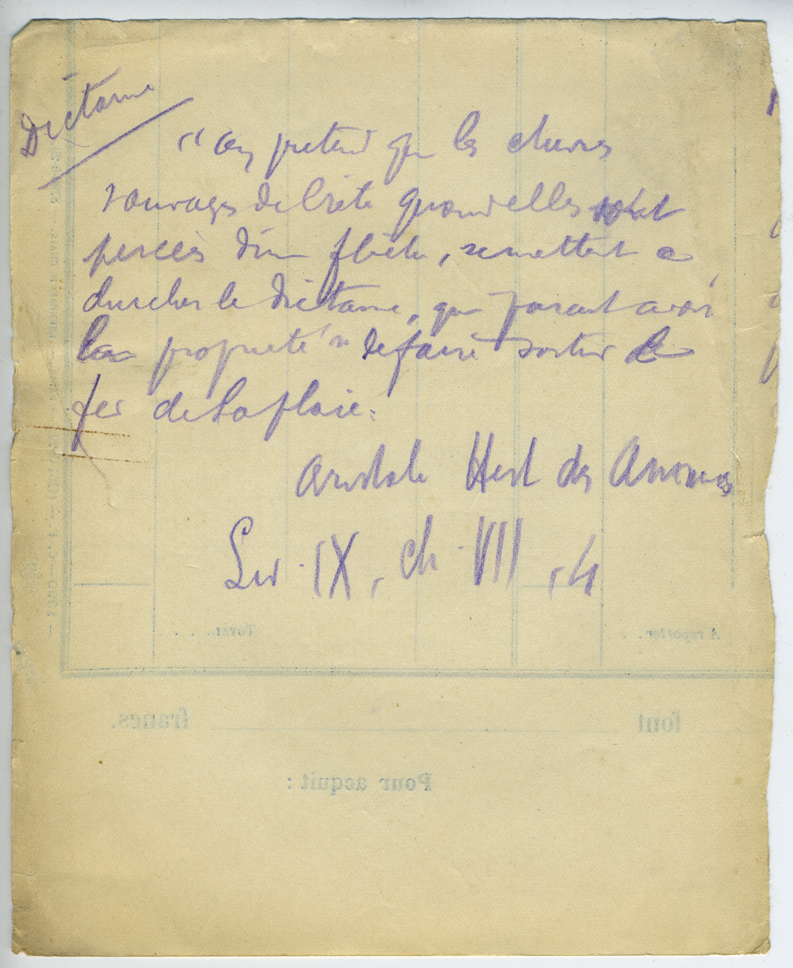 Dictame
"on prétend que les chèvres
sauvages de Crète quand elles sont
percées d'une flèche, se mettent à
chercher le dictame, qui parait avoir
la propriété de faire sortir le
fer de la plaie.
Aristote Hist des Animaux
Liv. IX, ch. VII, 4
A reporter. . .
Total. . . .
font
francs.
Pour acquit :